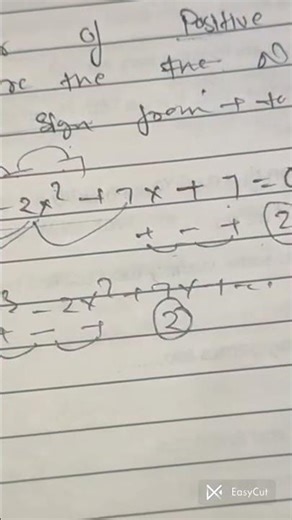 of Positive
the the N
sign from + to
- 2x² + 7x + 7 = 0
+ - + ②
3 - 2x² + 7x + = .
+ - + ②
EasyCut